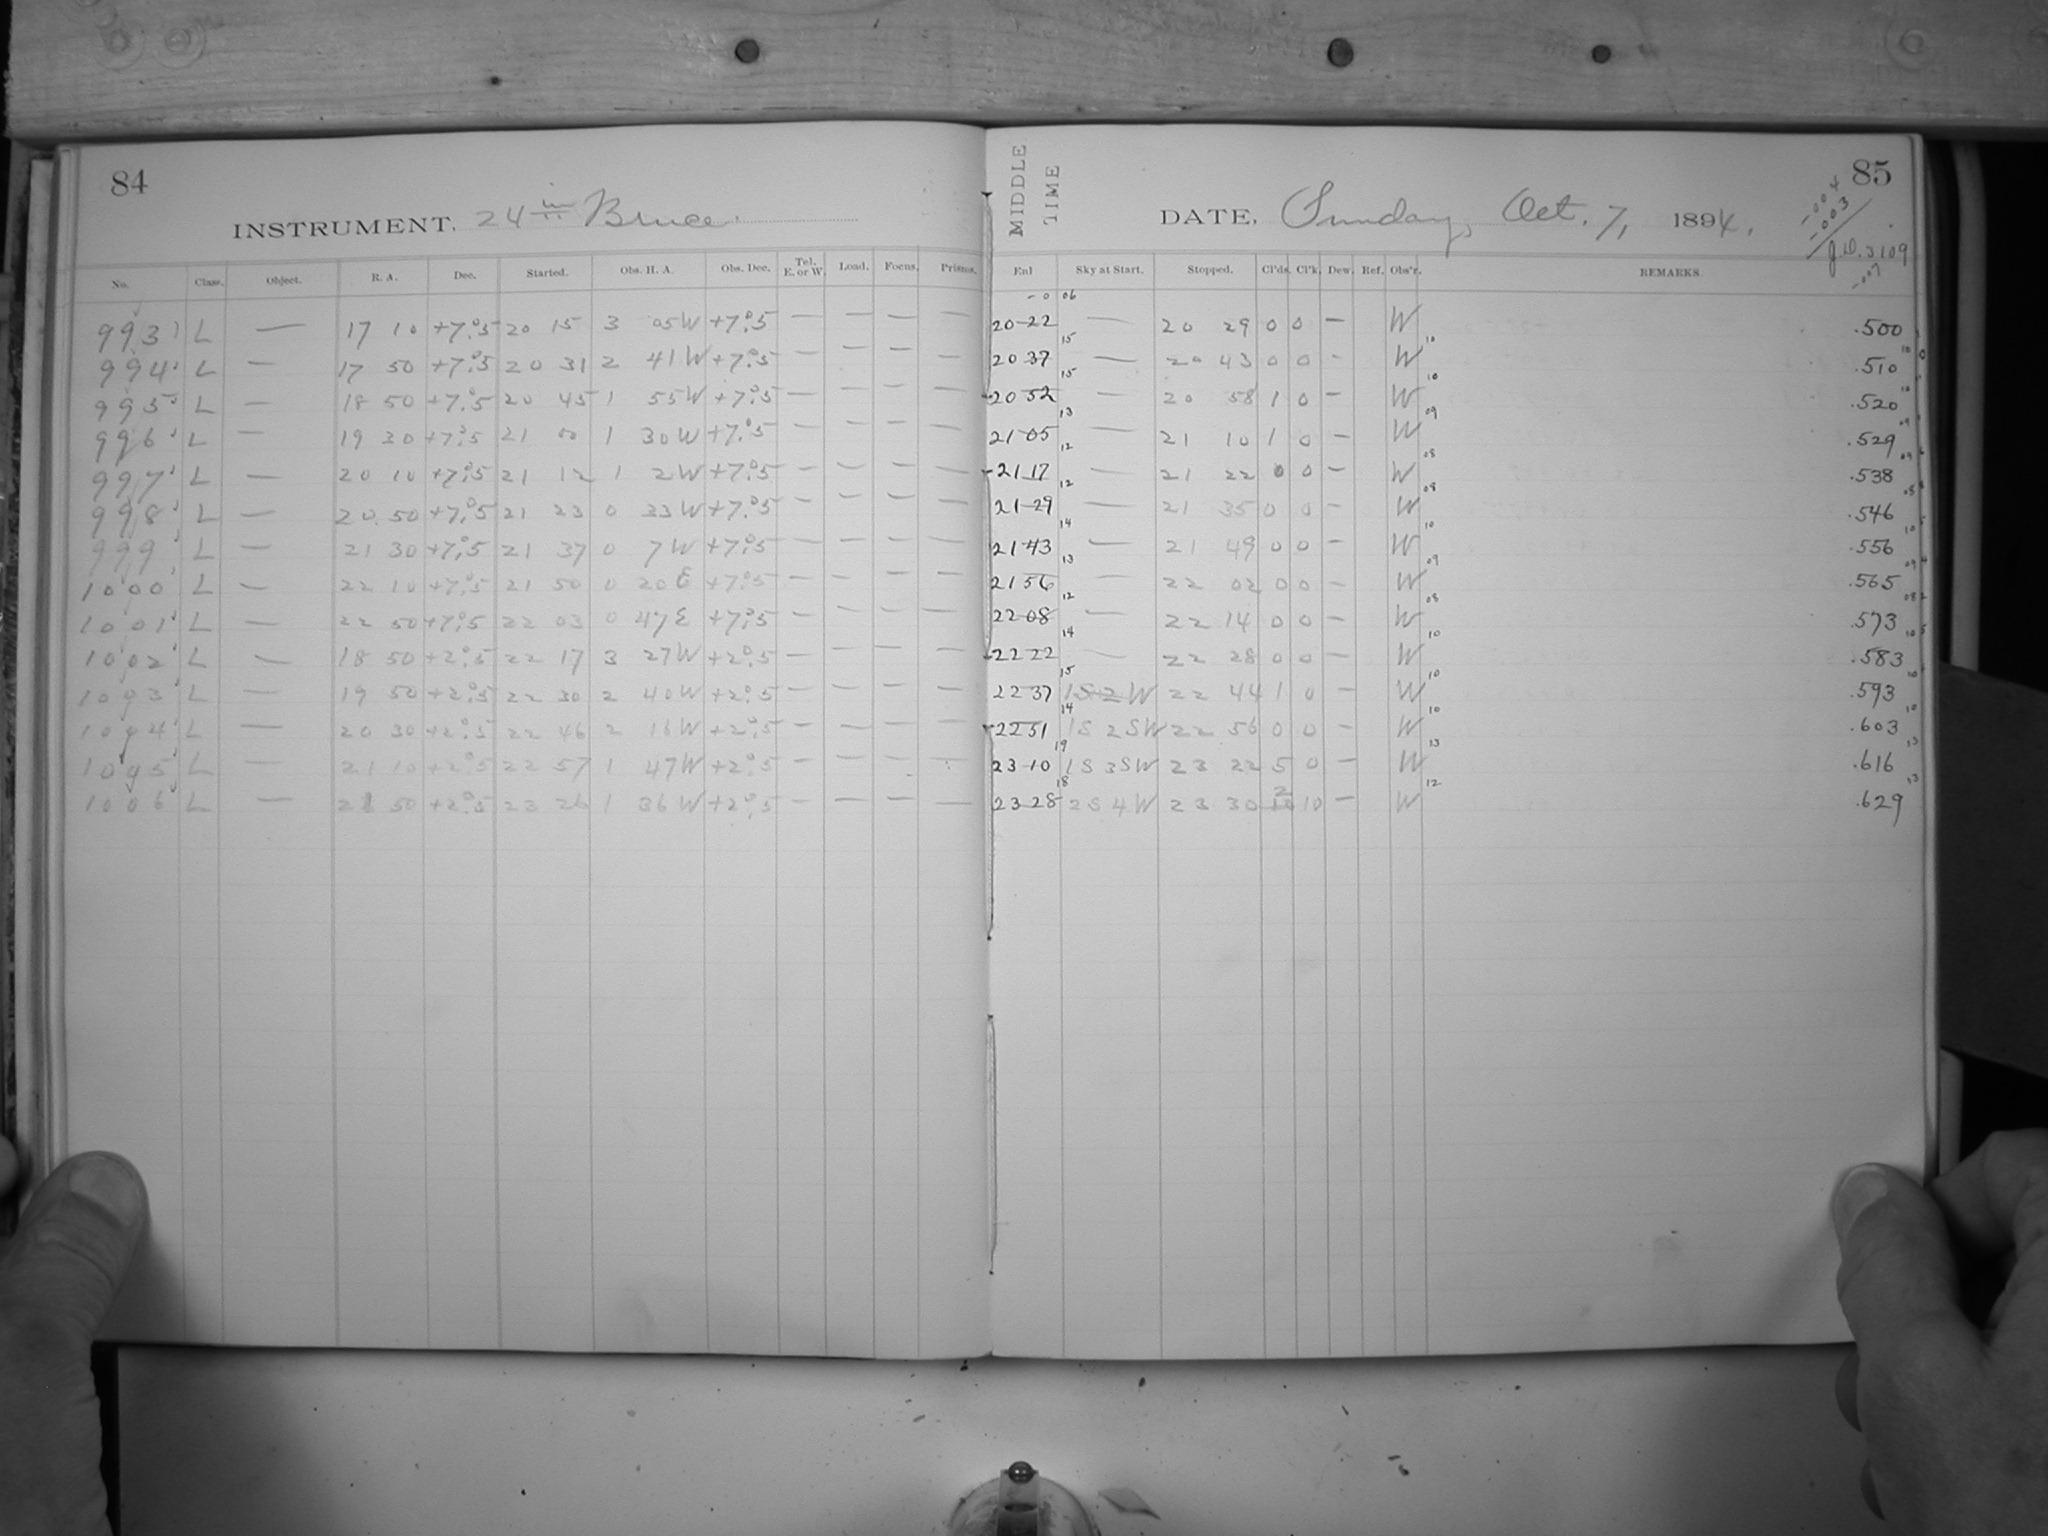 84
INSTRUMENT. 24 in Bruce.
No. Class. Object. R. A. Dec. Started. Obs. H. A. Obs. Dec. Tel. E. or W. Load. Focus. Prisms.
993 L — 17 10 +7.°5 20 15 3 05W +7.°5 — — — —
994 L — 17 50 +7.°5 20 31 2 41W +7.°5 — — — —
995 L — 18 50 +7.°5 20 45 1 55W +7.°5 — — — —
996 L — 19 30 +7.°5 21 00 1 30W +7.°5 — — — —
997 L — 20 10 +7.°5 21 12 1 2W +7.°5 — — — —
998 L — 20 50 +7.°5 21 23 0 33W +7.°5 — — — —
999 L — 21 30 +7.°5 21 37 0 7W +7.°5 — — — —
1000 L — 22 10 +7.°5 21 50 0 20E +7.°5 — — — —
1001 L — 22 50 +7.°5 22 03 0 47E +7.°5 — — — —
1002 L — 18 50 +2.°5 22 17 3 27W +2.°5 — — — —
1003 L — 19 50 +2.°5 22 30 2 40W +2.°5 — — — —
1004 L — 20 30 +2.°5 22 46 2 16W +2.°5 — — — —
1005 L — 21 10 +2.°5 22 57 1 47W +2.°5 — — — —
1006 L — 21 50 +2.°5 23 26 1 36W +2.°5 — — — —
MIDDLE TIME
85
DATE, Sunday, Oct. 7, 1894.
-004
-003
J.D. 3109
-007
Enl Sky at Start. Stopped. Cl'ds. Cl'k. Dew. Ref. Obs'r. REMARKS.
-0 06
20 22 — 20 29 0 0 — W .500
15 10 10
20 37 — 20 43 0 0 — W .510
15 10 10
20 52 — 20 58 1 0 — W .520
13 09 09
21 05 — 21 10 1 0 — W .529
12 08 09
21 17 — 21 22 0 0 — W .538
12 08 08
21 29 — 21 35 0 0 — W .546
14 10 10
21 43 — 21 49 0 0 — W .556
13 09 09
21 56 — 22 02 0 0 — W .565
12 08 08
22 08 — 22 14 0 0 — W .573
14 10 10
22 22 — 22 28 0 0 — W .583
15 10 10
22 37 1S 2W 22 44 1 0 — W .593
14 10 10
22 51 1S 2SW 22 56 0 0 — W .603
19 13 13
23 10 1S 3SW 23 22 5 0 — W .616
18 12 13
23 28 2S 4W 23 30 2 10 — W .629